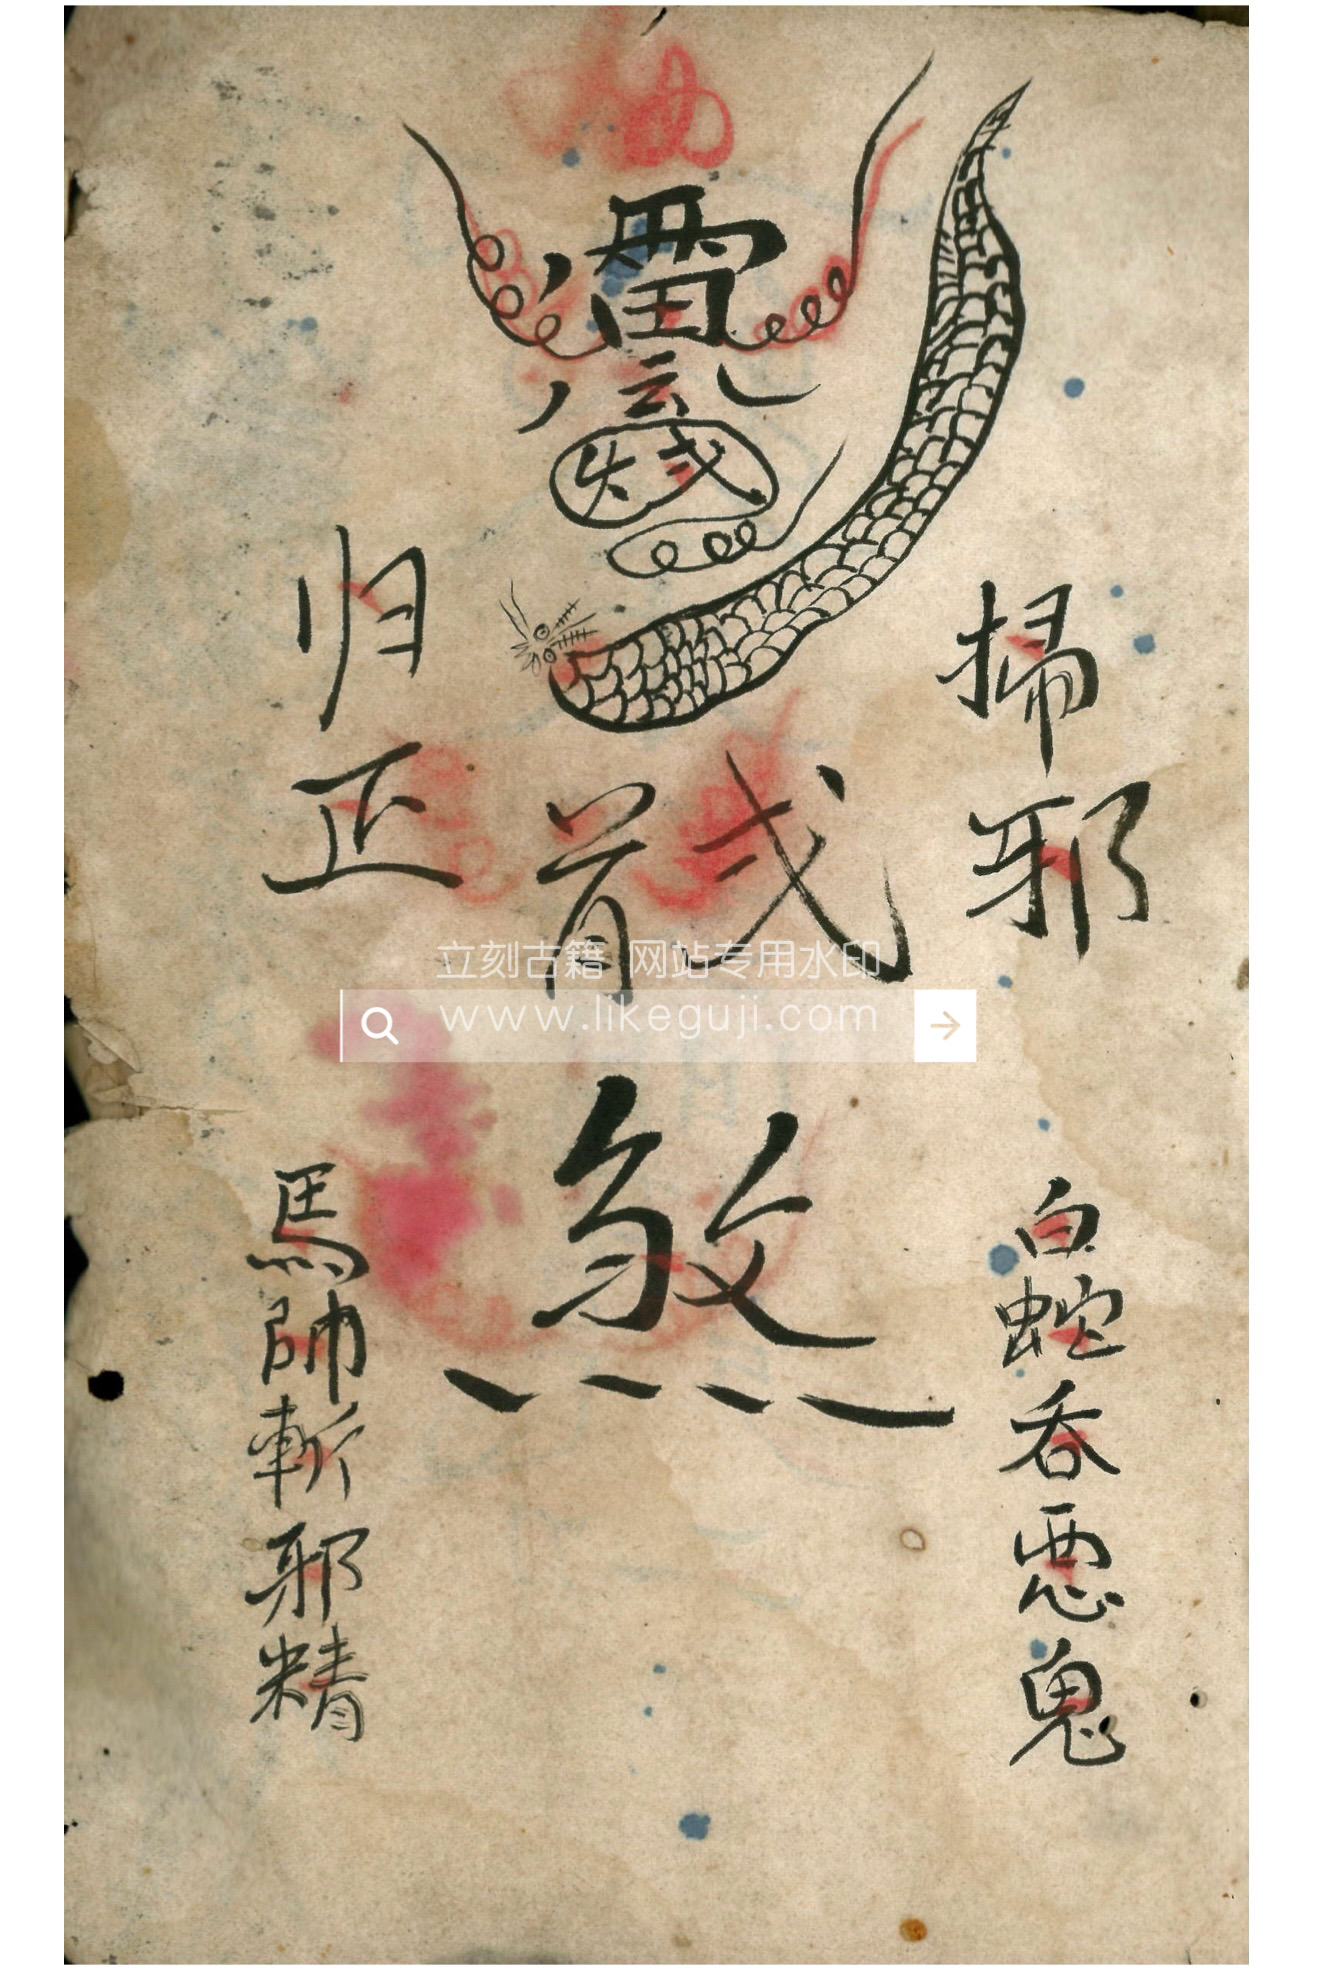 掃邪
归正
煞
白蛇呑悪鬼
馬帥斬邪精
立刻古籍 网站专用水印
www.likeguji.com